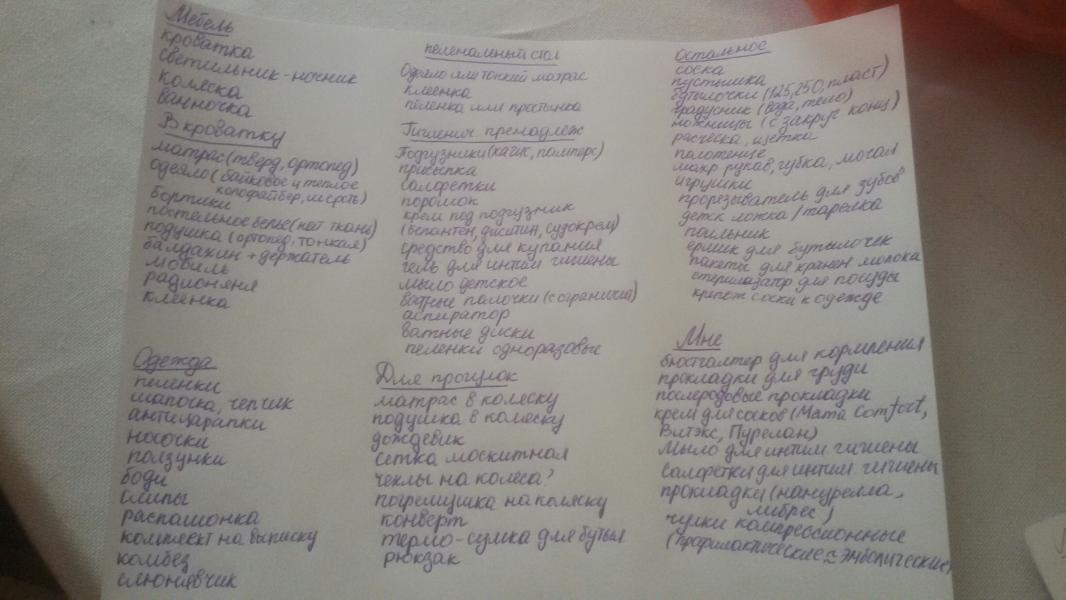 Мебель
кроватка
светильник-ночник
коляска
ванночка
В кроватку
матрас (тверд, ортопед)
одеяло (байковое и теплое
холофайбер, шерсть)
бортики
постельное белье (нат ткань)
подушка (ортопед, тонкая)
балдахин + держатель
мобиль
радионяня
клеенка
пеленальный стол
Одеяло или тонкий матрас
клеенка
пеленка или простынка
Гигиенич. пренадлеж
Подгузники (хагис, памперс)
присыпка
салфетки
порошок
крем под подгузник
(бепантен, деситин, судокрем)
средство для купания
гель для интим гигиены
мыло детское
ватные палочки (с огранич)
аспиратор
ватные диски
пеленки одноразовые
Остальное
соска
пустышка
бутылочки (125, 250, пласт)
градусник (вода, тело)
ножницы (с закруг конц)
расческа, щетка
полотенце
махр рукав, губка, мочал
игрушки
прорезыватель для зубов
детск ложка / тарелка
поильник
ершик для бутылочек
пакеты для хранен молока
стерилизатор для посуды
крепеж соски к одежде
Одежда
пеленки
шапочка, чепчик
антицарапки
носочки
ползунки
боди
слипы
распашонка
комплект на выписку
комбез
слюнявчик
Для прогулок
матрас в коляску
подушка в коляску
дождевик
сетка москитная
чехлы на колеса?
погремушка на коляску
конверт
термо-сумка для бутыл
рюкзак
Мне
бюстгалтер для кормления
прокладки для груди
послеродовые прокладки
крем для сосков (Mama Comfort,
Вэлтэкс, Пурелан)
Мыло для интим гигиены
салфетки для интим гигиены
прокладки (натурелла,
либрес)
чулки компрессионные
(профилактические ≈ эмболические)